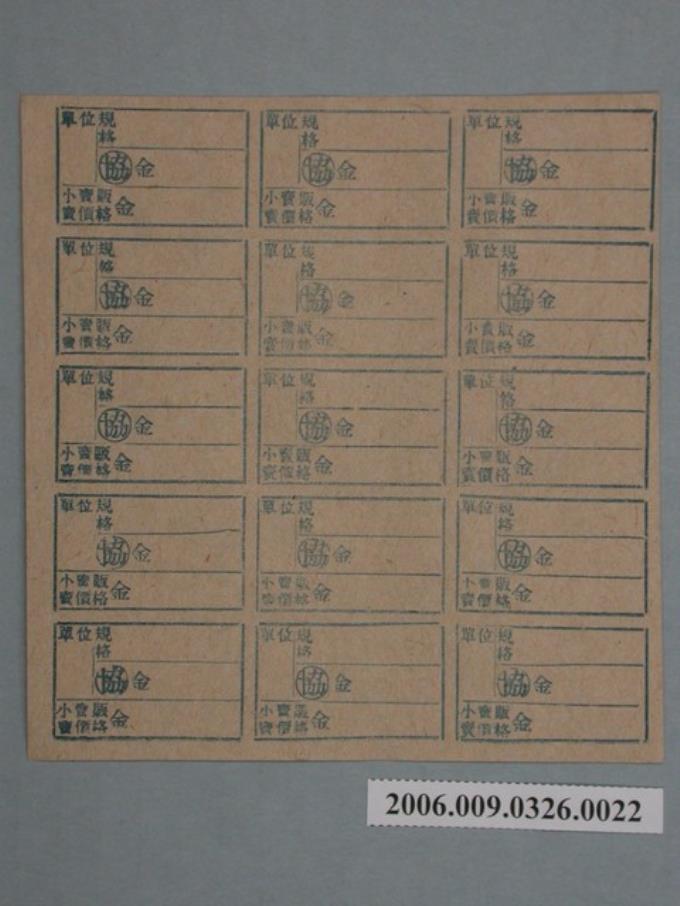 單位規
格
協金
小賣販
賣價格金
單位規
格
協金
小賣販
賣價格金
單位規
格
協金
小賣販
賣價格金
單位規
格
協金
小賣販
賣價格金
單位規
格
協金
小賣販
賣價格金
單位規
格
協金
小賣販
賣價格金
單位規
格
協金
小賣販
賣價格金
單位規
格
協金
小賣販
賣價格金
單位規
格
協金
小賣販
賣價格金
單位規
格
協金
小賣販
賣價格金
單位規
格
協金
小賣販
賣價格金
單位規
格
協金
小賣販
賣價格金
單位規
格
協金
小賣販
賣價格金
單位規
格
協金
小賣販
賣價格金
單位規
格
協金
小賣販
賣價格金
2006.009.0326.0022